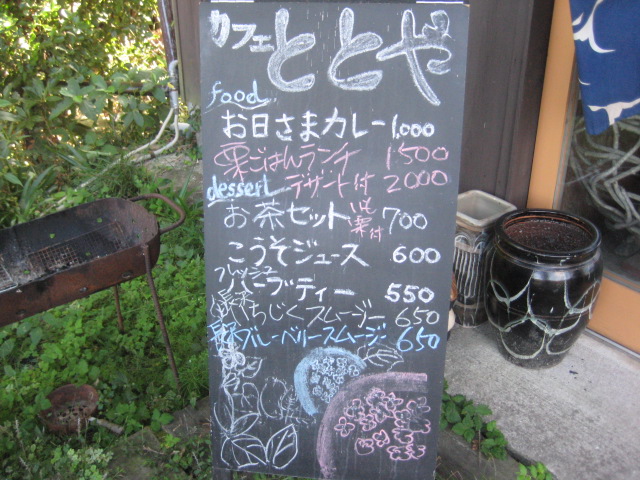 カフェ ととや
food
お日さまカレー 1,000
栗ごはんランチ 1500
dessert デザート付 2000
お茶セット いも菓付 700
こうそジュース 600
フレッシュハーブティー 550
いちじくスムージー 650
ブルーベリースムージー 650